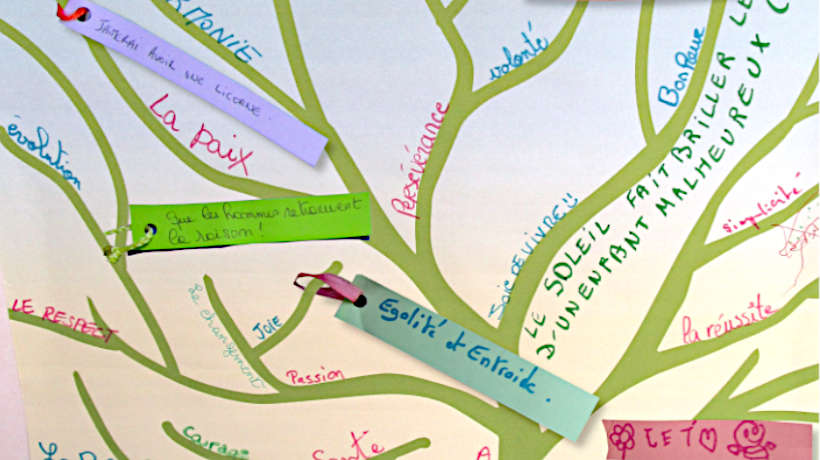 RMONIE
JAMERAI AVOIR UNE LICORNE.
La Paix
évolution
que les hommes retrouvent
la raison!
Persévérance
volonté
Bonheur
JOIE DE VIVRE!!
LE SOLEIL FAIT BRILLER LE
D'UN ENFANT MALHEUREUX
simplicité
la réussite
LE RESPECT
Le changement
JOIE
Passion
Egalité et Entraide.
Courage
Santé
A